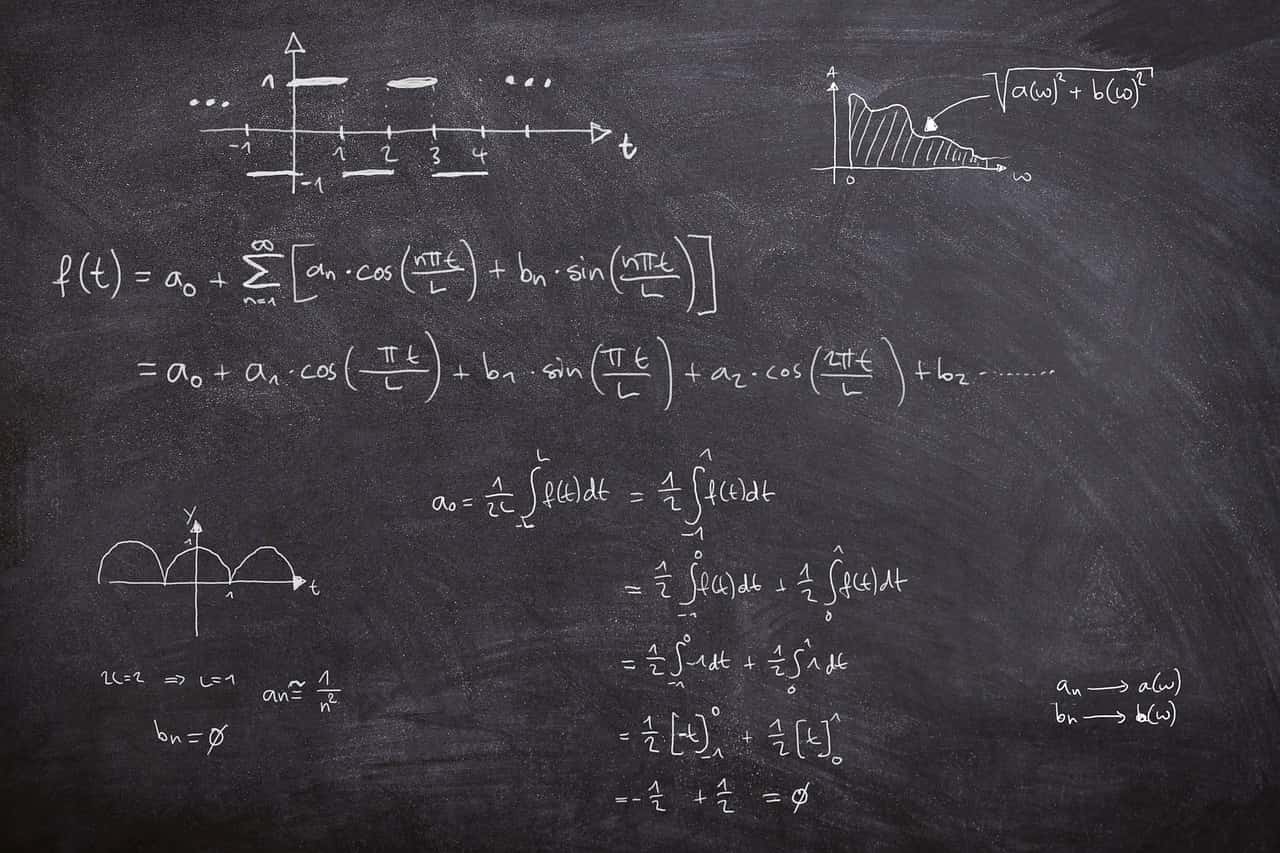 1
... ...
-1 1 2 3 4 t
-1
A
√a(ω)² + b(ω)²
0 ω
f(t) = a₀ + ∑ₙ₌₁^∞ [aₙ · cos(nπt/L) + bₙ · sin(nπt/L)]
= a₀ + a₁ · cos(πt/L) + b₁ · sin(πt/L) + a₂ · cos(2πt/L) + b₂ ........
a₀ = 1/2L ∫₋L^L f(t)dt = 1/2 ∫₋₁^1 f(t)dt
= 1/2 ∫₋₁^0 f(t)dt + 1/2 ∫₀^1 f(t)dt
= 1/2 ∫₋₁^0 -1dt + 1/2 ∫₀^1 1dt
= 1/2 [-t]₋₁^0 + 1/2 [t]₀^1
= -1/2 + 1/2 = ∅
y
1
1 t
2L=2 ⇒ L=1
aₙ ≅ 1/n²
bₙ = ∅
aₙ → a(ω)
bₙ → b(ω)